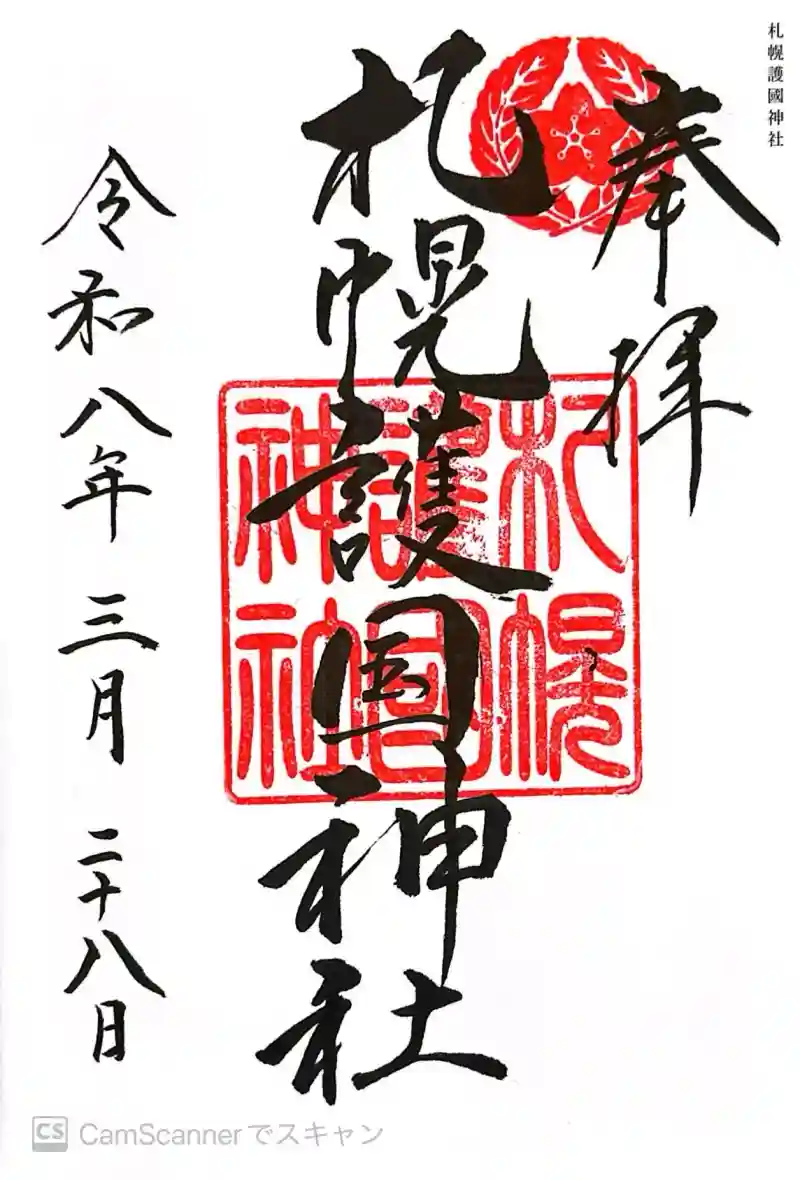 札幌護國神社
奉拝
札幌護国神社
札幌護國神社
令和八年三月二十八日
CS CamScannerでスキャン